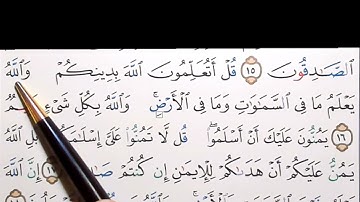 ٱلصَّـٰدِقُونَ ١٥ قُلۡ أَتُعَلِّمُونَ ٱللَّهَ بِدِينِكُمۡ وَٱللَّهُ
يَعۡلَمُ مَا فِي ٱلسَّمَـٰوَٰتِ وَمَا فِي ٱلۡأَرۡضِۚ وَٱللَّهُ بِكُلِّ شَيۡءٍ
١٦ يَمُنُّونَ عَلَيۡكَ أَنۡ أَسۡلَمُواْۖ قُل لَّا تَمُنُّواْ عَلَيَّ إِسۡلَـٰمَكُم بَلِ ٱللَّهُ
يَمُنُّ عَلَيۡكُمۡ أَنۡ هَدَىٰكُمۡ لِلۡإِيمَـٰنِ إِن كُنتُمۡ إِنَّ ٱللَّهَ